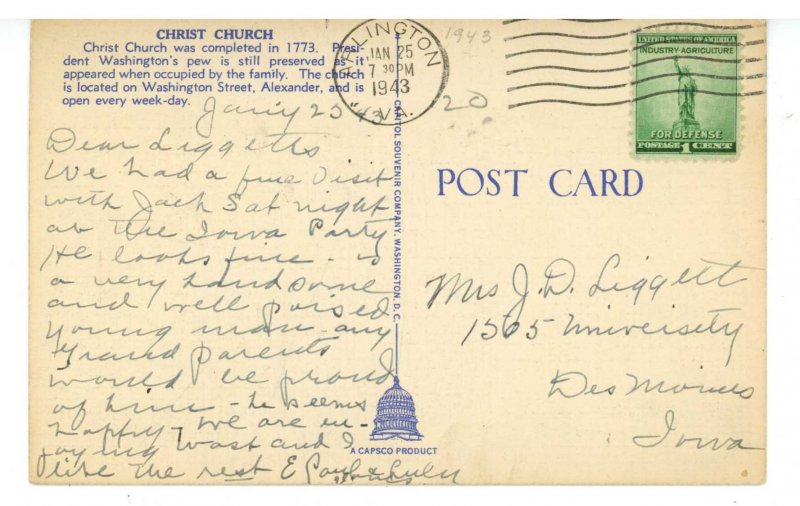 CHRIST CHURCH
Christ Church was completed in 1773. Presi-
dent Washington's pew is still preserved as it
appeared when occupied by the family. The church
is located on Washington Street, Alexander, and is
open every week-day.
ARLINGTON
JAN 25
7 30 PM
1943
VA.
1943
20
UNITED STATES OF AMERICA
INDUSTRY-AGRICULTURE
FOR DEFENSE
POSTAGE 1 CENT
25 43
Dear Liggetts
We had a fine visit
with Jack Sat night
at the Iowa Party
He looks fine - is
a very handsome
and well poised
young man - any
Grand parents
would be proud
of him - he seems
happy - We are en-
joying Wash and I
like the rest E
CAPITOL SOUVENIR COMPANY, WASHINGTON, D.C.
A CAPSCO PRODUCT
POST CARD
Mrs J. D. Liggett
1505 University
Des Moines
Iowa